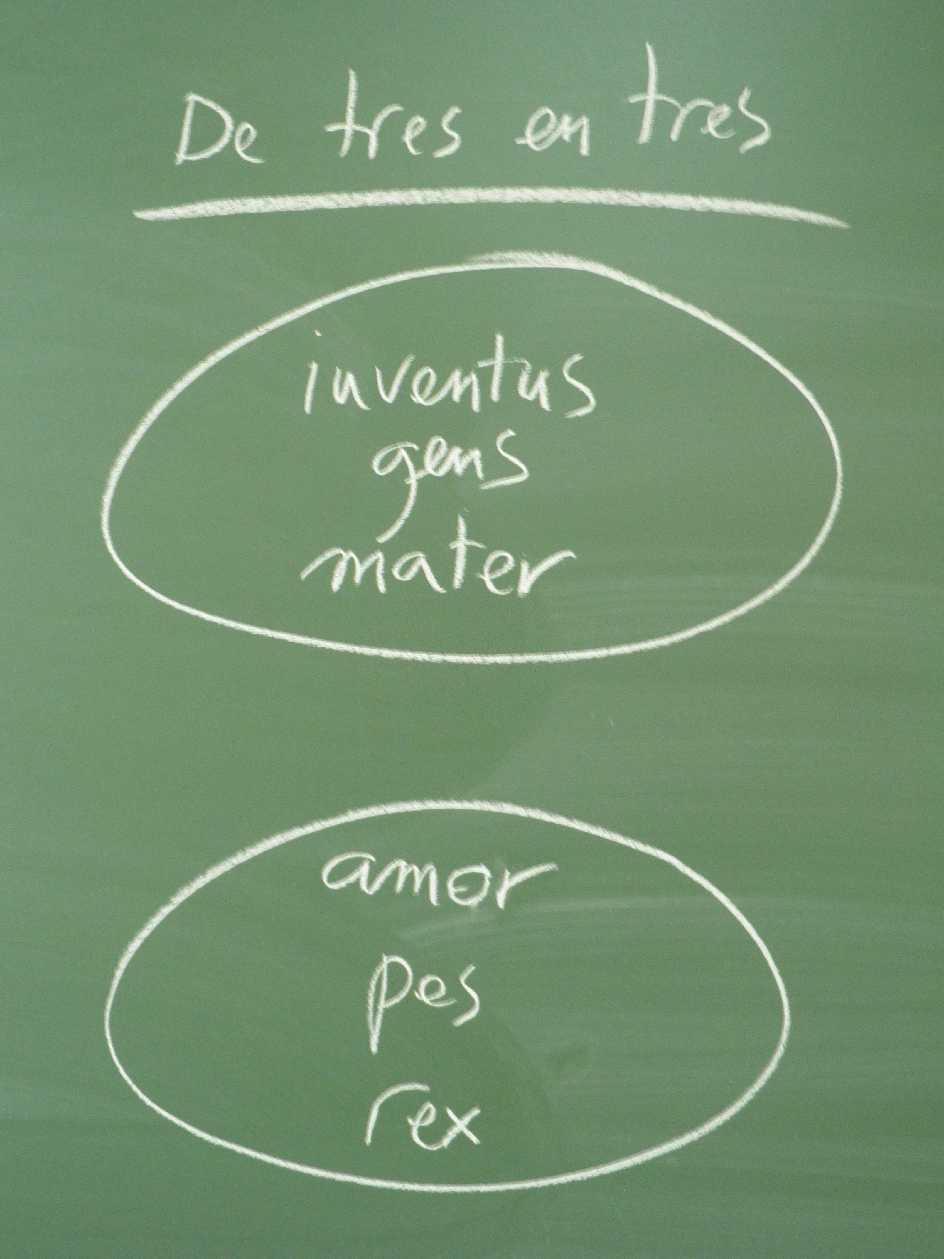 De tres en tres
iuventus
gens
mater
amor
pes
rex